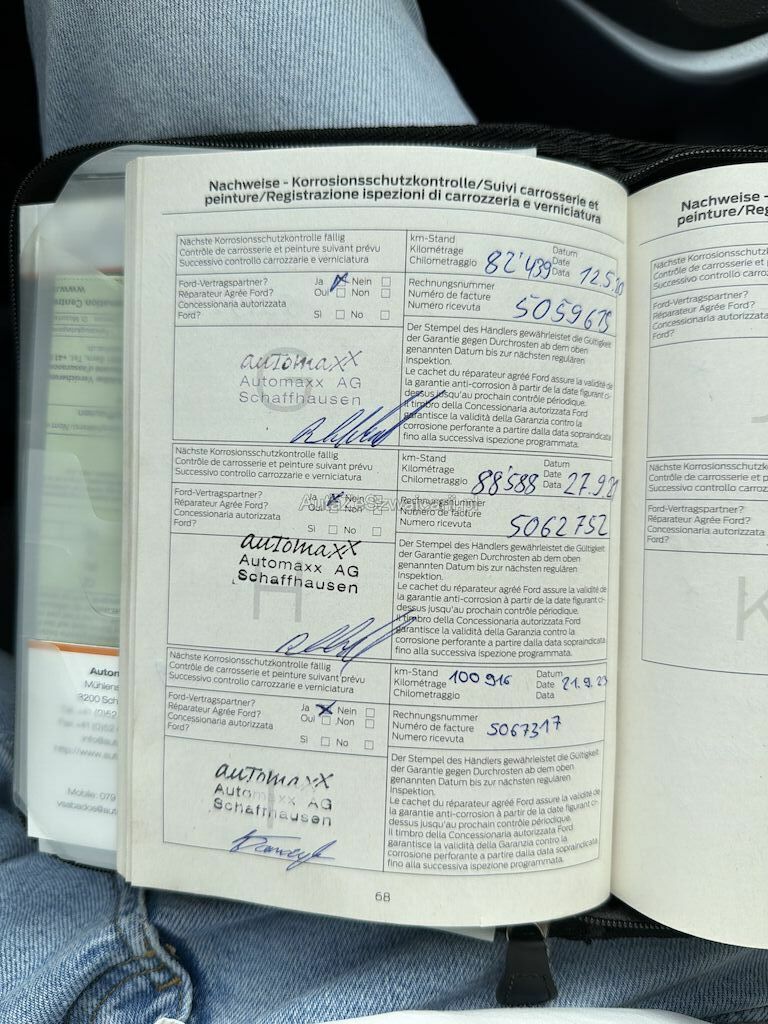 Nachweise - Korrosionsschutzkontrolle/Suivi carrosserie et
peinture/Registrazione ispezioni di carrozzeria e verniciatura
Nächste Korrosionsschutzkontrolle fällig
Contrôle de carrosserie et peinture suivant prévu
Successivo controllo carrozzarie e verniciatura
km-Stand
Kilométrage
Chilometraggio
82'439
Datum
Date
Data
12.5.
Ford-Vertragspartner?
Réparateur Agrée Ford?
Concessionaria autorizzata
Ford?
Ja Nein
Oui Non
Sì No
Rechnungsnummer
Numéro de facture
Numero ricevuta
5059675
G
automaxx
Automaxx AG
Schaffhausen
Der Stempel des Händlers gewährleistet die Gültigkeit
der Garantie gegen Durchrosten ab dem oben
genannten Datum bis zur nächsten regulären
Inspektion.
Le cachet du réparateur agréé Ford assure la validité de
la garantie anti-corrosion à partir de la date figurant ci-
dessus jusqu'au prochain contrôle périodique.
Il timbro della Concessionaria autorizzata Ford
garantisce la validità della Garanzia contro la
corrosione perforante a partire dalla data sopraindicata
fino alla successiva ispezione programmata.
Nächste Korrosionsschutzkontrolle fällig
Contrôle de carrosserie et peinture suivant prévu
Successivo controllo carrozzarie e verniciatura
km-Stand
Kilométrage
Chilometraggio
88'588
Datum
Date
Data
27.9.21
Ford-Vertragspartner?
Réparateur Agrée Ford?
Concessionaria autorizzata
Ford?
Ja Nein
Oui Non
Sì No
Rechnungsnummer
Numéro de facture
Numero ricevuta
5062752
H
automaxx
Automaxx AG
Schaffhausen
Der Stempel des Händlers gewährleistet die Gültigkeit
der Garantie gegen Durchrosten ab dem oben
genannten Datum bis zur nächsten regulären
Inspektion.
Le cachet du réparateur agréé Ford assure la validité de
la garantie anti-corrosion à partir de la date figurant ci-
dessus jusqu'au prochain contrôle périodique.
Il timbro della Concessionaria autorizzata Ford
garantisce la validità della Garanzia contro la
corrosione perforante a partire dalla data sopraindicata
fino alla successiva ispezione programmata.
Nächste Korrosionsschutzkontrolle fällig
Contrôle de carrosserie et peinture suivant prévu
Successivo controllo carrozzarie e verniciatura
km-Stand
Kilométrage
Chilometraggio
100916
Datum
Date
Data
21.9.23
Ford-Vertragspartner?
Réparateur Agrée Ford?
Concessionaria autorizzata
Ford?
Ja Nein
Oui Non
Sì No
Rechnungsnummer
Numéro de facture
Numero ricevuta
5067317
I
automaxx
Automaxx AG
Schaffhausen
Der Stempel des Händlers gewährleistet die Gültigkeit
der Garantie gegen Durchrosten ab dem oben
genannten Datum bis zur nächsten regulären
Inspektion.
Le cachet du réparateur agréé Ford assure la validité de
la garantie anti-corrosion à partir de la date figurant ci-
dessus jusqu'au prochain contrôle périodique.
Il timbro della Concessionaria autorizzata Ford
garantisce la validità della Garanzia contro la
corrosione perforante a partire dalla data sopraindicata
fino alla successiva ispezione programmata.
68
Nachweise -
peinture/Reg
Nächste Korrosionsschutzk
Contrôle de carrosserie et
Successivo controllo carroz
Ford-Vertragspartner?
Réparateur Agrée Ford?
Concessionaria autorizzata
Ford?
J
Nächste Korrosionsschutzk
Contrôle de carrosserie et p
Successivo controllo carroz
Ford-Vertragspartner?
Réparateur Agrée Ford?
Concessionaria autorizzata
Ford?
K
Autom
Mühlens
8200 Sch
http://www.aut
Mobile: 079
vsabados@aut